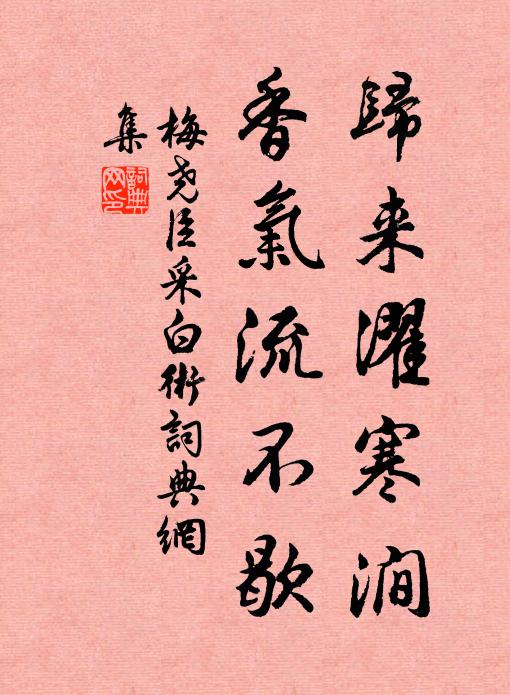 歸来濯寒澗
香氣流不歇
梅堯臣采白術詞典網
集
詞典
网印